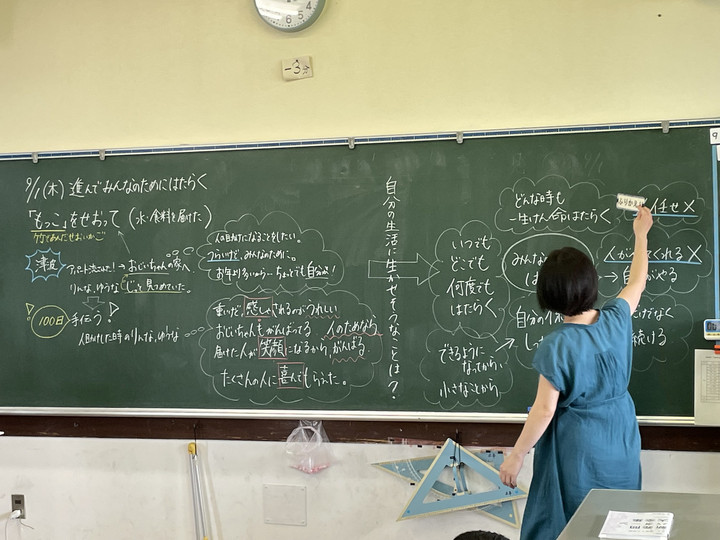 9/1(木) 進んでみんなのためにはたらく
「もっこ」をせおって (水・食料を届けた)
竹であんだせおいかご
津波
アパート流された!→おじいちゃんの家へ
りんな、ゆうな じっと見つめていた。
100日 手伝う
人助けした時のりんな、ゆうな
人の助けになることをしたい。
つらいけど、みんなのために。
お年より多いから…ちょっとでも自分が!
重いけど、感しゃされるのがうれしい
おじいちゃんもがんばってる 人のためなら
届けた人が笑顔になるから、がんばる。
たくさんの人に喜んでもらえた。
自分の生活に生かせそうなことは?
いつでも
どこでも
何度でも
はたらく
できるように
なってから、
小さなことから
どんな時も
一生けん命はたらく
みんな
は
自分の
し
ふりかえ
任せ×
人が てくれる×
→自 がやる
だけでなく
続ける
-3
9